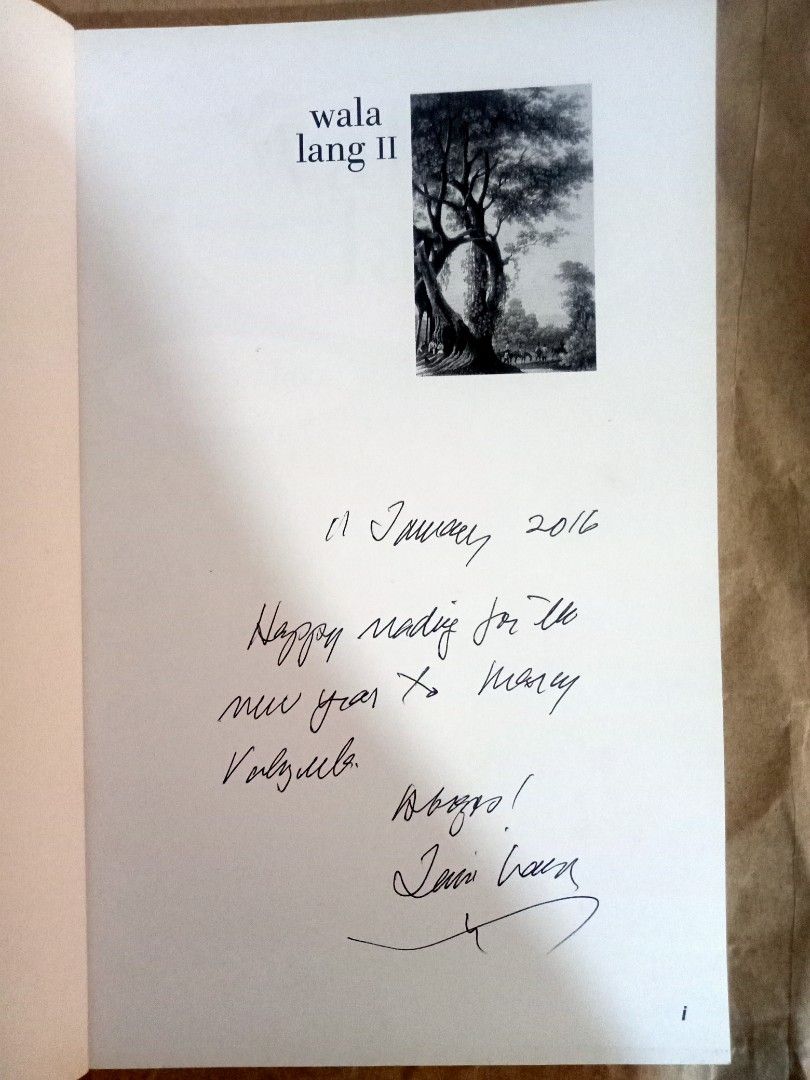 wala
lang II
11 January 2016
Happy reading for the
new year to Marcy
Valenzuela.
i